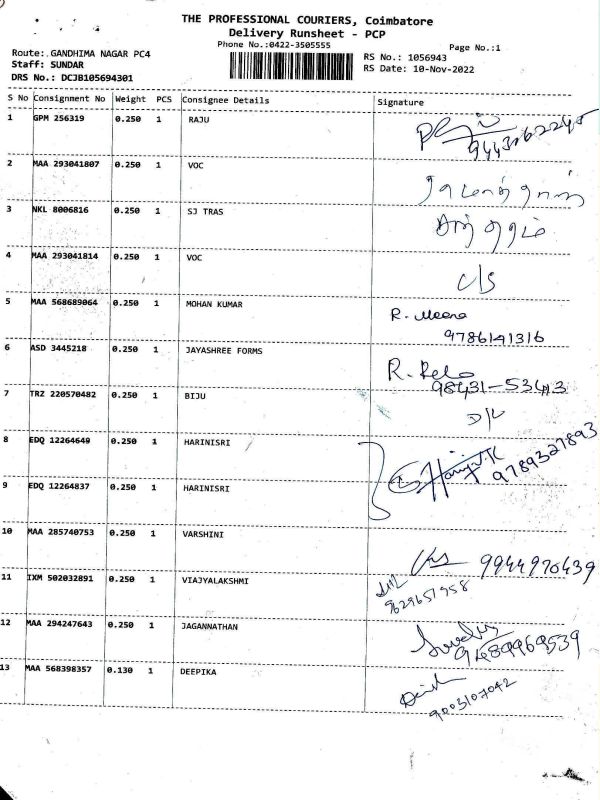 THE PROFESSIONAL COURIERS, Coimbatore
Delivery Runsheet - PCP
Phone No.:0422-3505555
Page No.:1
Route:.GANDHIMA NAGAR PC4
Staff: SUNDAR
DRS No.: DCJB105694301
RS No.: 1056943
RS Date: 10-Nov-2022
S No Consignment No Weight PCS Consignee Details Signature
1 GPM 256319 0.250 1 RAJU
2 MAA 293041807 0.250 1 VOC
3 NKL 8006816 0.250 1 SJ TRAS
4 MAA 293041814 0.250 1 VOC C/S
5 MAA 568689064 0.250 1 MOHAN KUMAR R. Meena
9786141316
6 ASD 3445218 0.250 1 JAYASHREE FORMS R.
98431-53413
7 TRZ 220570482 0.250 1 BIJU D/L
8 EDQ 12264649 0.250 1 HARINISRI
9789327893
9 EDQ 12264837 0.250 1 HARINISRI
10 MAA 285740753 0.250 1 VARSHINI 9944970439
11 IXM 502032891 0.250 1 VIAJYALAKSHMI
9629657958
12 MAA 294247643 0.250 1 JAGANNATHAN
9489969539
13 MAA 568398357 0.130 1 DEEPIKA
9003107042